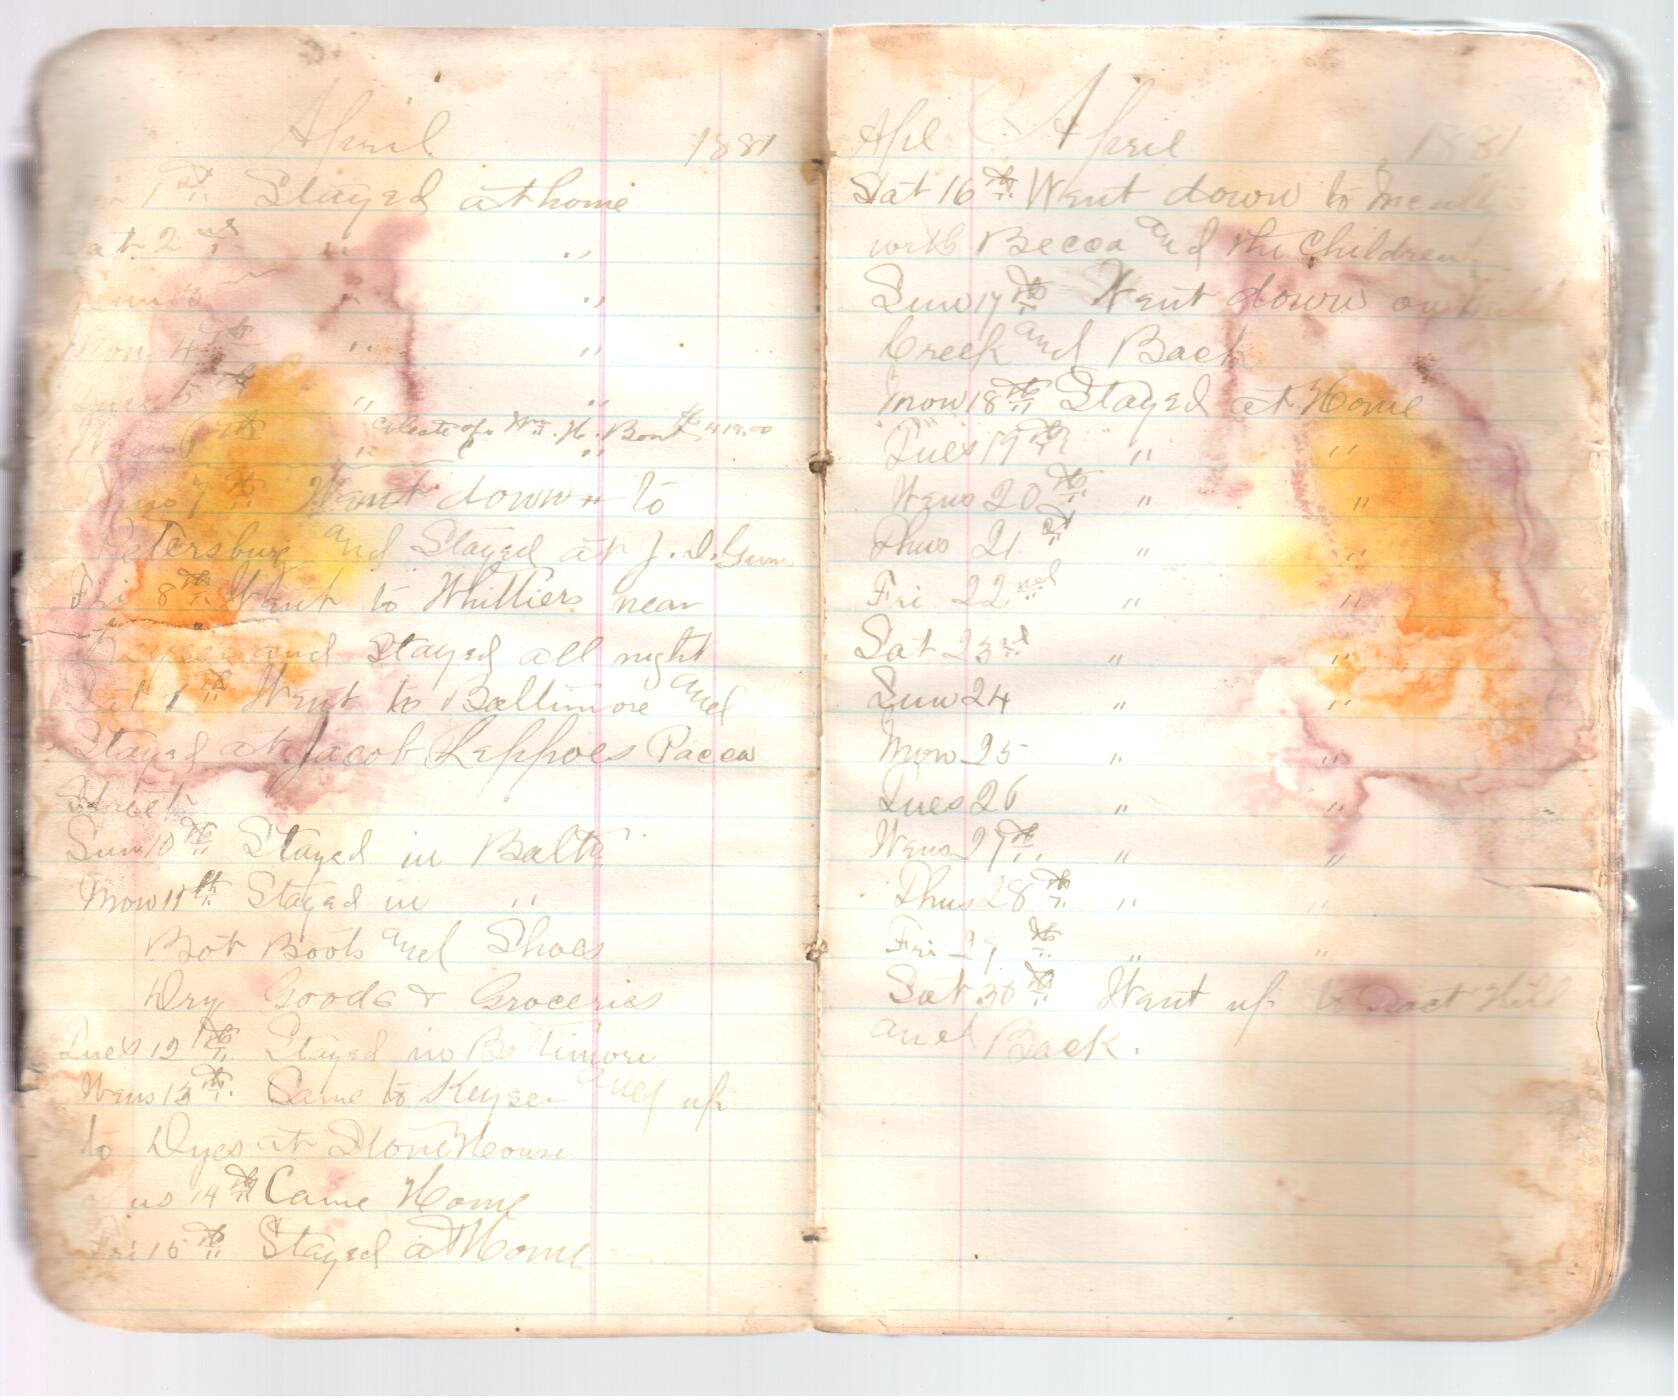 April 1881
1st Stayed at home
Sat 2nd " "
" "
Mon 4th " "
Tues 5th " "
Collected of Wm. H. Bont $
Wens 6th " "
7th Went down to
Petersburg and Stayed at J. D. Gum
Fri 8th Went to Whittiers near
Keyser and Stayed all night
Sat 9th Went to Baltimore and
Stayed at Jacob Leppoes Pacca
Street
Sun 10th Stayed in Balto
Mon 11th Stayed in "
Bot Boots and Shoes
Dry Goods & Groceries
Tues 12th Stayed in Baltimore
Wens 13th Came to Keyser and up
to Dyes at Stone House
Thus 14th Came Home
Fri 15th Stayed at Home
April 1881
Sat 16th Went down to
with Becca and the Children
Sun 17th Went down on
Creek and Back
Mon 18th Stayed at Home
Tues 19th " "
Wens 20th " "
Thus 21st " "
Fri 22nd " "
Sat 23rd " "
Sun 24 " "
Mon 25 " "
Tues 26 " "
Wens 27th " "
Thus 28th " "
Fri 29th " "
Sat 30th Went up to Hill
and Back.